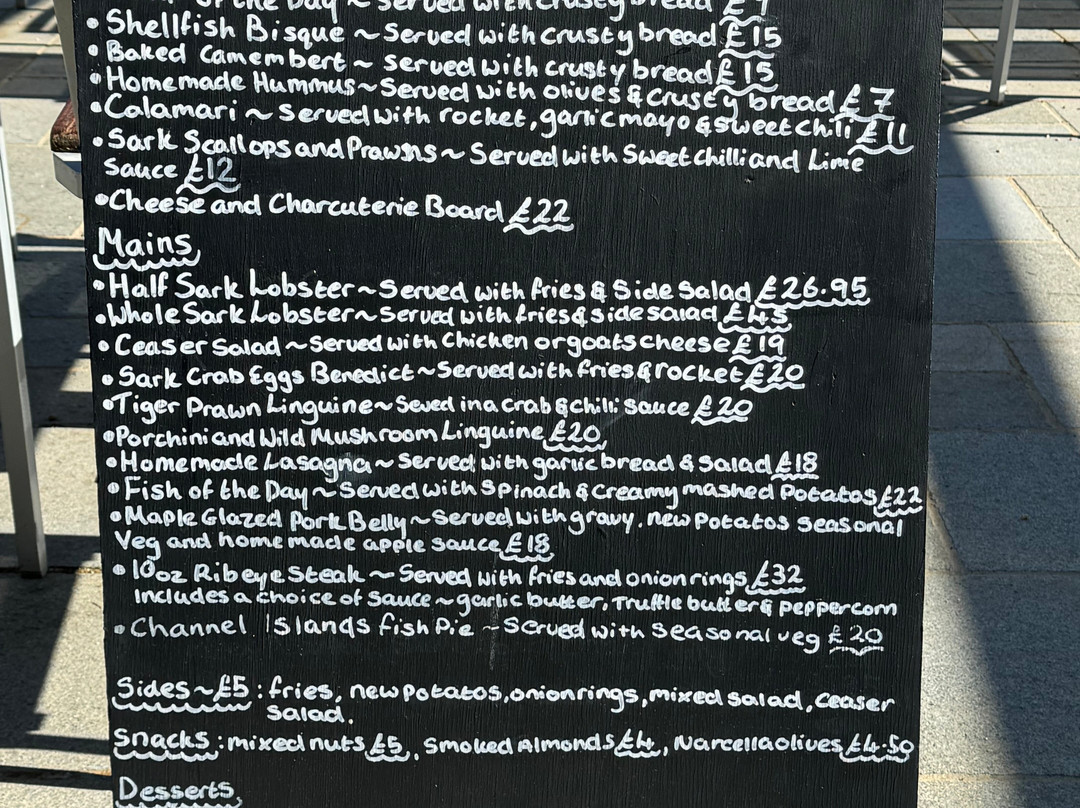 of the Day ~ Served with crusty bread £9
• Shellfish Bisque ~ Served with crusty bread £15
• Baked Camembert ~ served with crusty bread £15
• Homemade Hummus ~ Served with olives & crusty bread £7
• Calamari ~ Served with rocket, garlic mayo & sweet chili £11
• Sark Scallops and Prawsns ~ Served with Sweet chilli and Lime
Sauce £12
• Cheese and Charcuterie Board £22
Mains
• Half Sark Lobster ~ Served with fries & Side Salad £26.95
• Whole Sark Lobster ~ Served with fries & side salad £45
• Ceaser Salad ~ Served with Chicken or goats cheese £19
• Sark Crab Eggs Benedict ~ Served with fries & rocket £20
• Tiger Prawn Linguine ~ Seved in a crab & chilli sauce £20
• Porchini and Wild Mushroom Linguine £20
• Homemade Lasagna ~ Served with garlic bread & Salad £18
• Fish of the Day ~ Served with Spinach & Creamy mashed Potatos £22
• Maple Glazed Pork Belly ~ Served with gravy, new Potatos seasonal
Veg and homemade apple sauce £18
• 10oz Ribeye Steak ~ Served with fries and onion rings £32
Includes a choice of Sauce ~ garlic butter, Truffle butter & peppercorn
• Channel Islands fish Pie ~ Served with Seasonal veg £20
Sides ~ £5 : fries, new potatos, onion rings, mixed salad, ceaser
salad.
Snacks : mixed nuts £5, Smoked Almonds £4, Narcella olives £4.50
Desserts